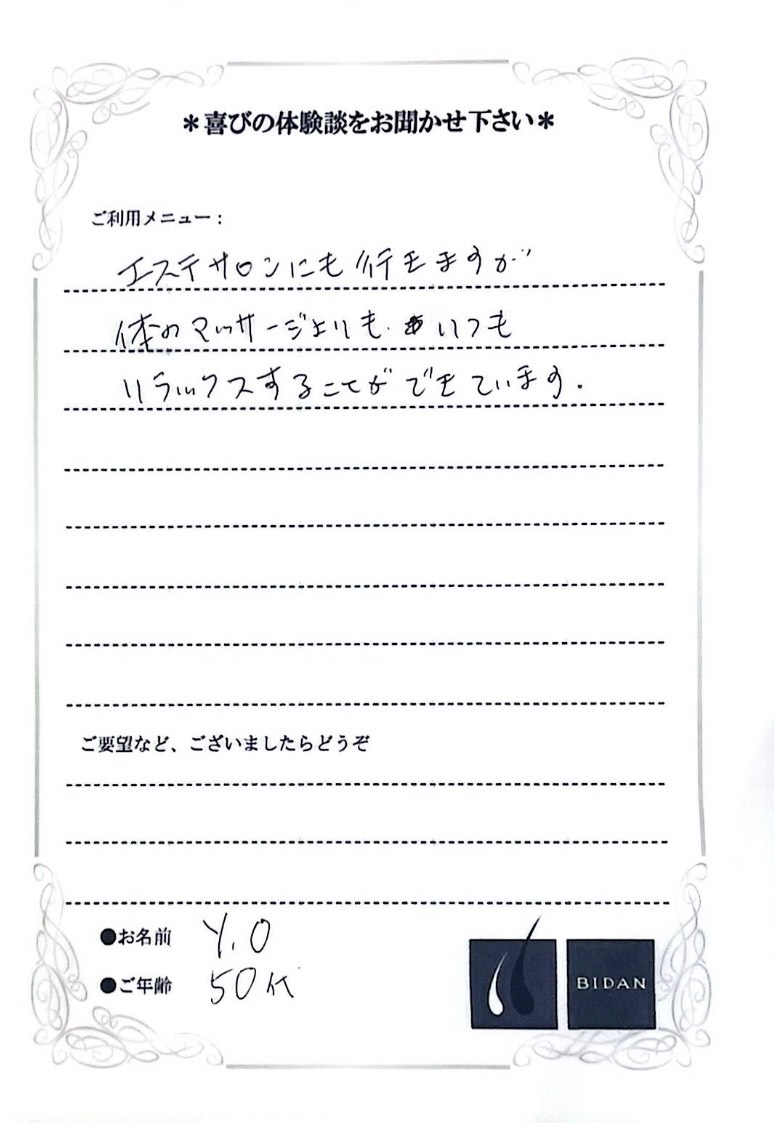 ＊喜びの体験談をお聞かせ下さい＊
ご利用メニュー：
エステサロンにも行きますが
体のマッサージよりも いつも
リラックスすることができています.
ご要望など、ございましたらどうぞ
●お名前 Y.O
●ご年齢 50代
BIDAN